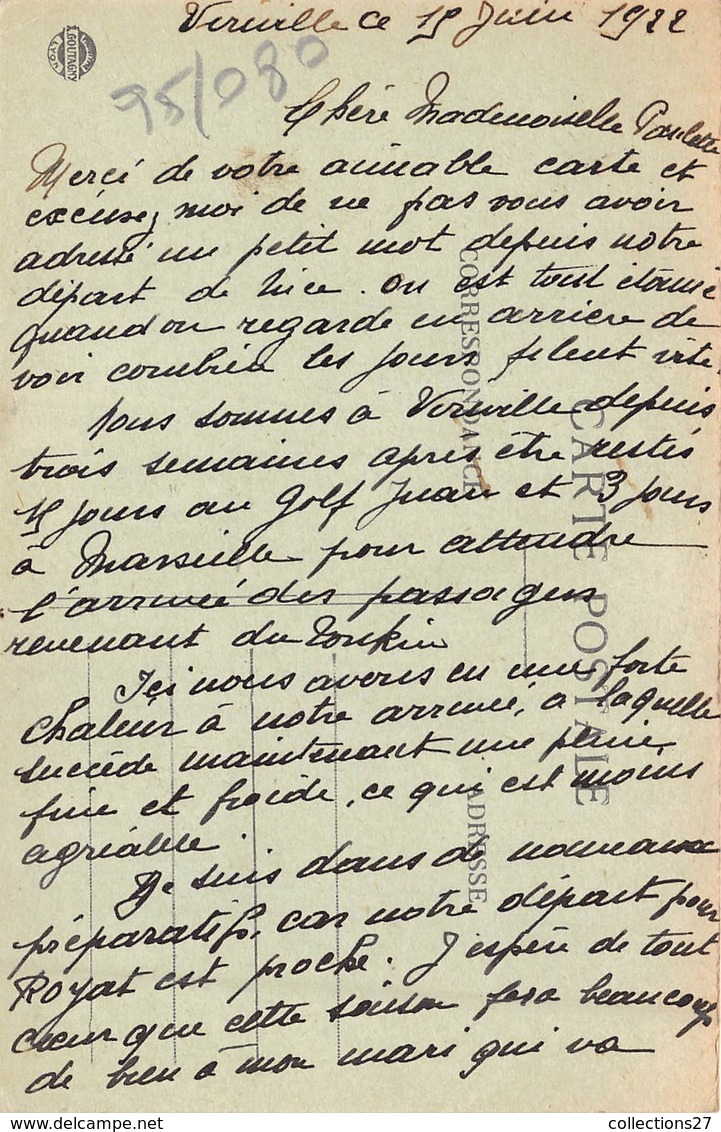 Verville ce 15 Juin 1922
GOUTAGNY
LYON
95/080
Chère Mademoiselle Paulette
Merci de votre aimable carte et
excusez moi de ne pas vous avoir
adressé un petit mot depuis notre
départ de Nice. On est tout étonné
quand on regarde en arrière de
voir combien les jours filent vite.
Nous sommes à Verville depuis
trois semaines après être restés
15 jours au Golf Juan et 3 jours
à Marseille pour attendre
l'arrivée des passagers
revenant du Tonkin
Ici nous avons eu une forte
chaleur à notre arrivée, à laquelle
succède maintenant une pluie
fine et froide, ce qui est moins
agréable.
Je suis dans de nouveaux
préparatifs, car notre départ pour
Royat est proche. J'espère de tout
cœur que cette saison fera beaucoup
de bien à mon mari qui va
CARTE POSTALE
CORRESPONDANCE
ADRESSE
collections27